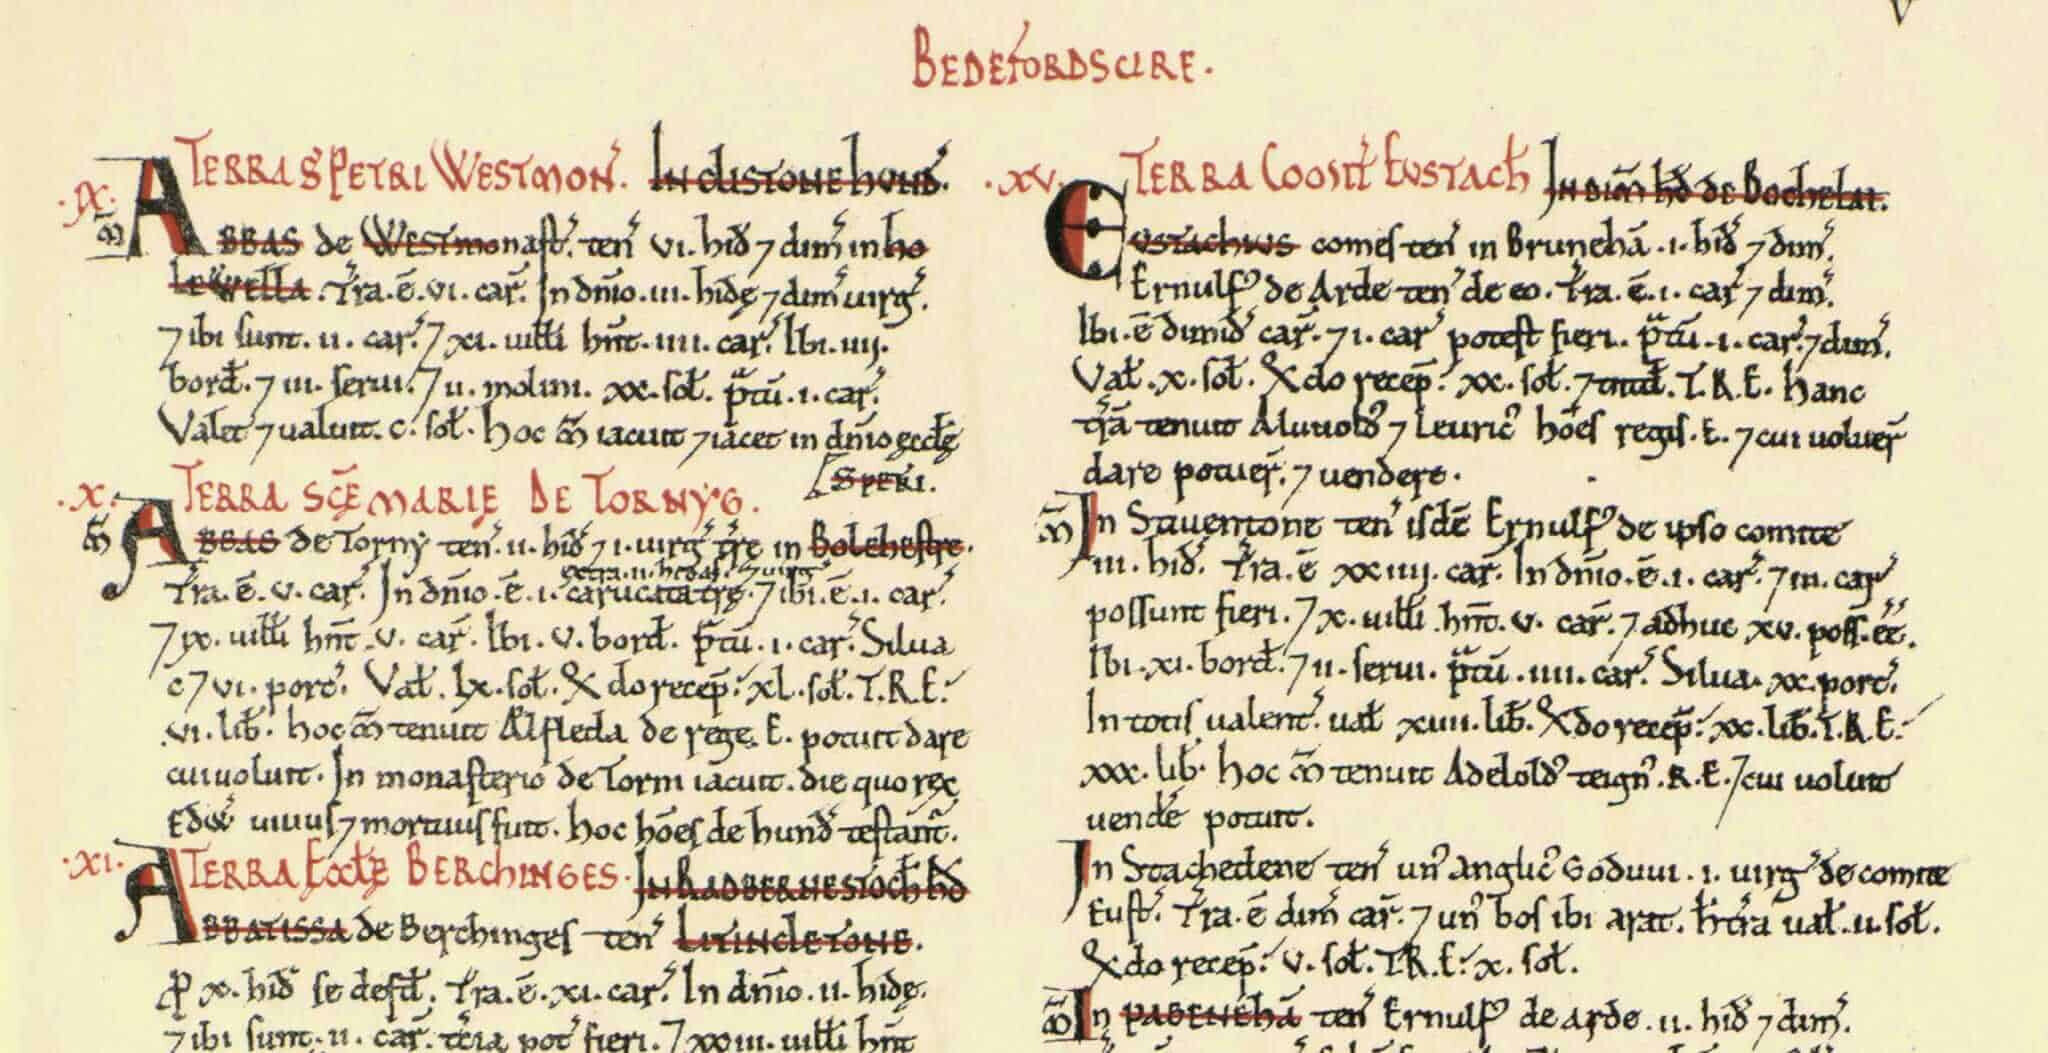 BEDEFORDSCIRE.
.IX. TERRA S PETRI WESTMON̄. IN CLISTONE HUND̄.
M̄ ABBAS de Westmonast̄. ten̄ .vi. hid̄ ⁊ dim̄ in ho
lewella. Tr̄a.ē.vi. car̄. In dn̄io.iii. hidę ⁊ dim̄ uirḡ.
⁊ ibi sunt.ii. car̄. ⁊ xi. uilłi hn̄t.iiii. car̄. Ibi.iiij.
bord̄. ⁊ iii. serui. ⁊ ii. molini. xx. soł. p̄tū.i. car̄.
Valet ⁊ ualuit. c. soł. hoc m̄ iacuit ⁊ iacet in dn̄io ęcclę
[S PETRI.
.X. TERRA SC̄E MARIE DE TORNYG.
M̄ ABBAS de Torny ten̄.ii. hid̄ ⁊ i. uirḡ tr̄ę in Bolehestre.
extra.ii. hidas. ⁊ uirḡ
Tr̄a.ē.v. car̄. In dn̄io.ē.i. carucata tr̄ę. ⁊ ibi.ē.i. car̄.
⁊ ix. uilłi hn̄t.v. car̄. Ibi.v. bord̄. p̄tū.i. car̄. Silua
c ⁊ vi. porc̄. Vał.lx. soł. & do recep̄: xl. soł. T.R.E:
.vi. lib̄. hoc m̄ tenuit Alfleda de rege. E. potuit dare
cui uoluit. In monasterio de Torni iacuit. die quo rex
Edw̄ uiuus ⁊ mortuus fuit. hoc hōes de hund̄ testant̄.
.XI. TERRA ECCLĘ BERCHINGES. IN RADBERNESTOCH HD̄
ABBATISSA de Berchinges ten̄ LITINCLETONE.
ꝑ x. hid̄ se defd̄. Tr̄a.ē.xi. car̄. In dn̄io.ii. hidę.
⁊ ibi sunt.ii. car̄. tc̄ia pot̄ fieri. ⁊ xxiii. uilłi hn̄t
.XV. TERRA COMIT̄ EUSTACH̄ IN DIM̄ HD̄ DE Bochelai.
EUSTACHIUS comes ten̄ in Brunehā.i. hid̄ ⁊ dim̄.
Ernulf⁹ de Arde ten̄ de eo. Tr̄a.ē.i. car̄ ⁊ dim̄.
Ibi.ē dimid̄ car̄. ⁊ i. car̄ potest fieri. p̄tū.i. car̄. ⁊ dim̄.
Vał.x. soł. & do recep̄: xx. soł. ⁊ tntd̄. T.R.E. hanc
tr̄ā tenuit Aluuold⁹ ⁊ Leuric⁹ hōes regis.E. ⁊ cui uoluer̄
dare potuer̄. ⁊ uendere.
M̄ In Stiuentone ten̄ isdē Ernulf⁹ de ipso comite
iii. hid̄. Tr̄a.ē xxiiij. car̄. In dn̄io.ē.i. car̄. ⁊ iii. car̄
possunt fieri. ⁊ x. uilłi hn̄t.v. car̄. ⁊ adhuc xv. poss̄.ēē.
Ibi.xi. bord̄. ⁊ ii. serui. p̄tū.iiii. car̄. Silua.xx. porc̄.
In totis ualent̄. uał xiiii. lib̄. & do recep̄: xx. lib̄. T.R.E:
xxx. lib̄. hoc m̄ tenuit Adelold⁹ teign̄.R.E. ⁊ cui uoluit
uend̄e potuit.
In Stachedene ten̄ un⁹ anglic⁹ Goduui.i. uirḡ de comite
Eust̄. Tr̄a.ē dim̄ car̄. ⁊ un⁹ bos ibi arat. h̄ tr̄a uał.ii. soł.
& do recep̄: v. soł. T.R.E: x. soł.
M̄ In PABENEHĀ ten̄ Ernulf⁹ de arde.ii. hid̄ ⁊ dim̄.